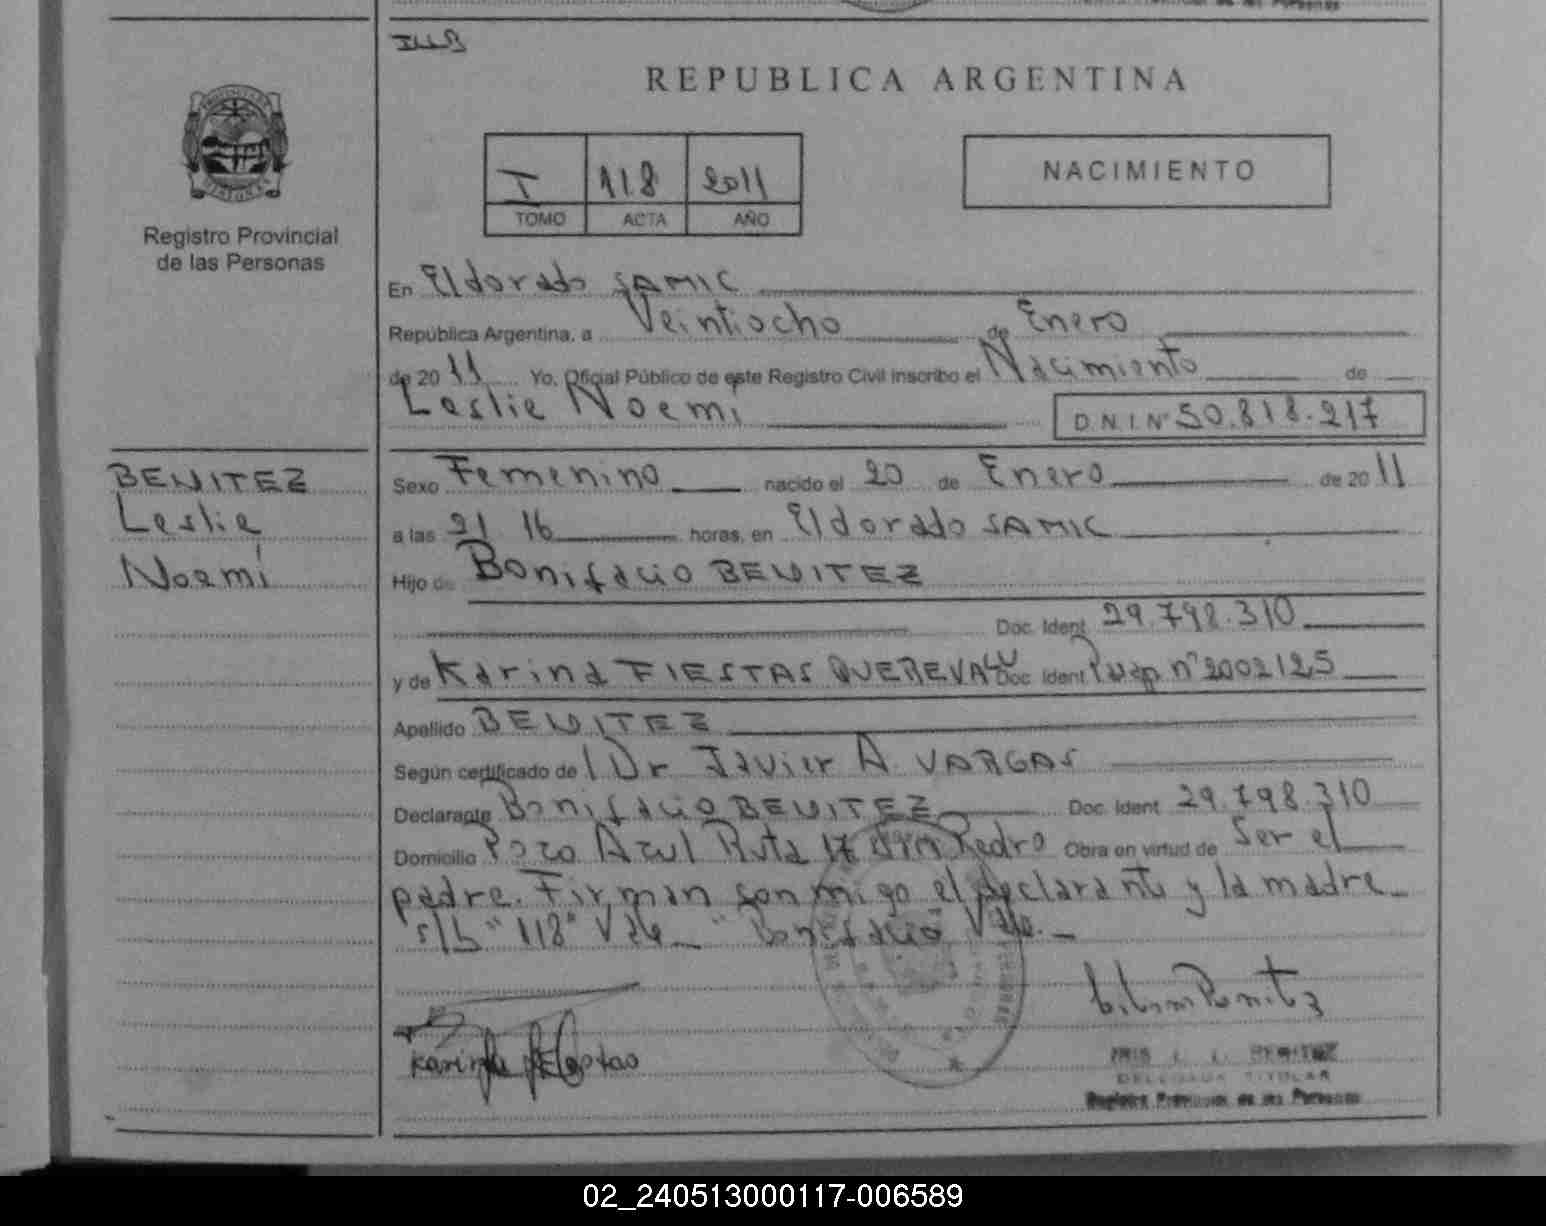 REPUBLICA ARGENTINA
I 118 2011
TOMO ACTA AÑO
NACIMIENTO
Registro Provincial
de las Personas
En Eldorado SAMIC
República Argentina, a Veintiocho de Enero
de 2011 Yo, Oficial Público de este Registro Civil inscribo el Nacimiento de
Leslie Noemi
D.N.I.Nº 50.818.217
BENITEZ
Leslie
Noemi
Sexo Femenino nacido el 20 de Enero de 2011
a las 21 16 horas, en Eldorado SAMIC
Hijo de Bonifacio BENITEZ
Doc. Ident. 29.798.310
y de Karina FIESTAS QUEREVALU Doc. Ident. nº 2002125
Apellido BENITEZ
Según certificado de Dr Javier A. VARGAS
Declarante Bonifacio BENITEZ Doc. Ident. 29.798.310
Domicilio Pozo Azul Ruta 17 San Pedro Obra en virtud de Ser el
padre. Firman conmigo el declarante y la madre
s/b "118" Vale "Bonifacio Vale.
DELEGADA TITULAR
Registro Provincial de las Personas
02_240513000117-006589